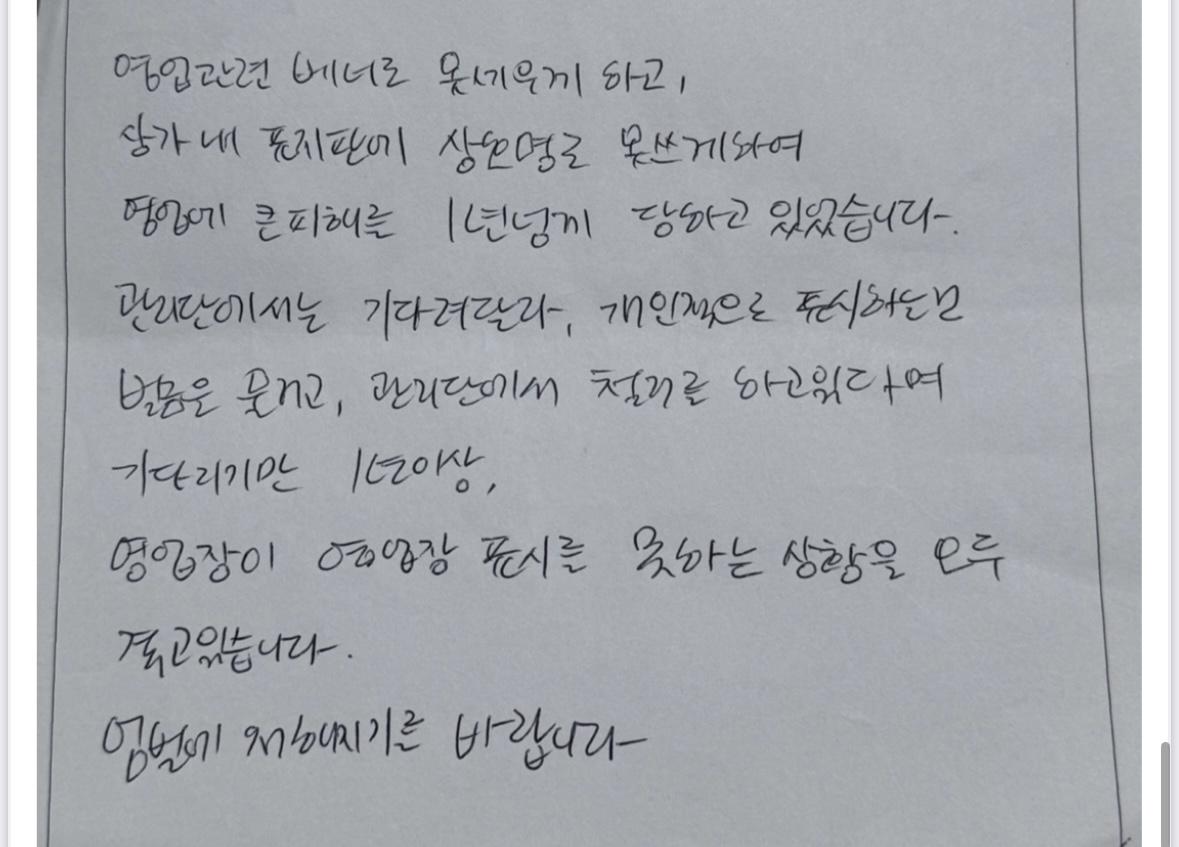 영업관련 베너로 못세우게 하고,
상가 내 표지판에 상호명도 못쓰게하여
영업에 큰피해를 1년넘게 당하고 있었습니다.
관리단에서는 기다려달라, 개인적으로 표시하는건
벌금을 물리고, 관리단에서 철거를 하고있다하여
기다리기만 1년이상,
영업장이 영업장 표시를 못하는 상황을 모두
겪고있습니다.
엄벌에 처해지기를 바랍니다